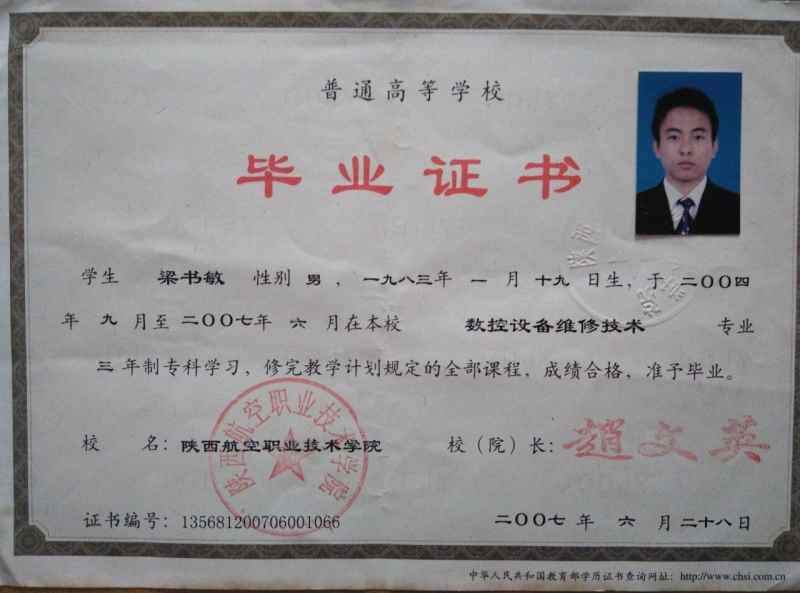 普通高等学校
毕业证书
学生 梁书敏 性别 男 ，一九八三年 一 月 十九 日生，于 二〇〇四
年 九 月至 二〇〇七年 六 月在本校 数控设备维修技术 专业
三 年制专科学习，修完教学计划规定的全部课程，成绩合格，准予毕业。
校 名：陕西航空职业技术学院 校（院）长：趙文英
陕西航空职业技术学院
证书编号：135681200706001066 二〇〇七 年 六 月二十八日
中华人民共和国教育部学历证书查询网址：http://www.chsi.com.cn